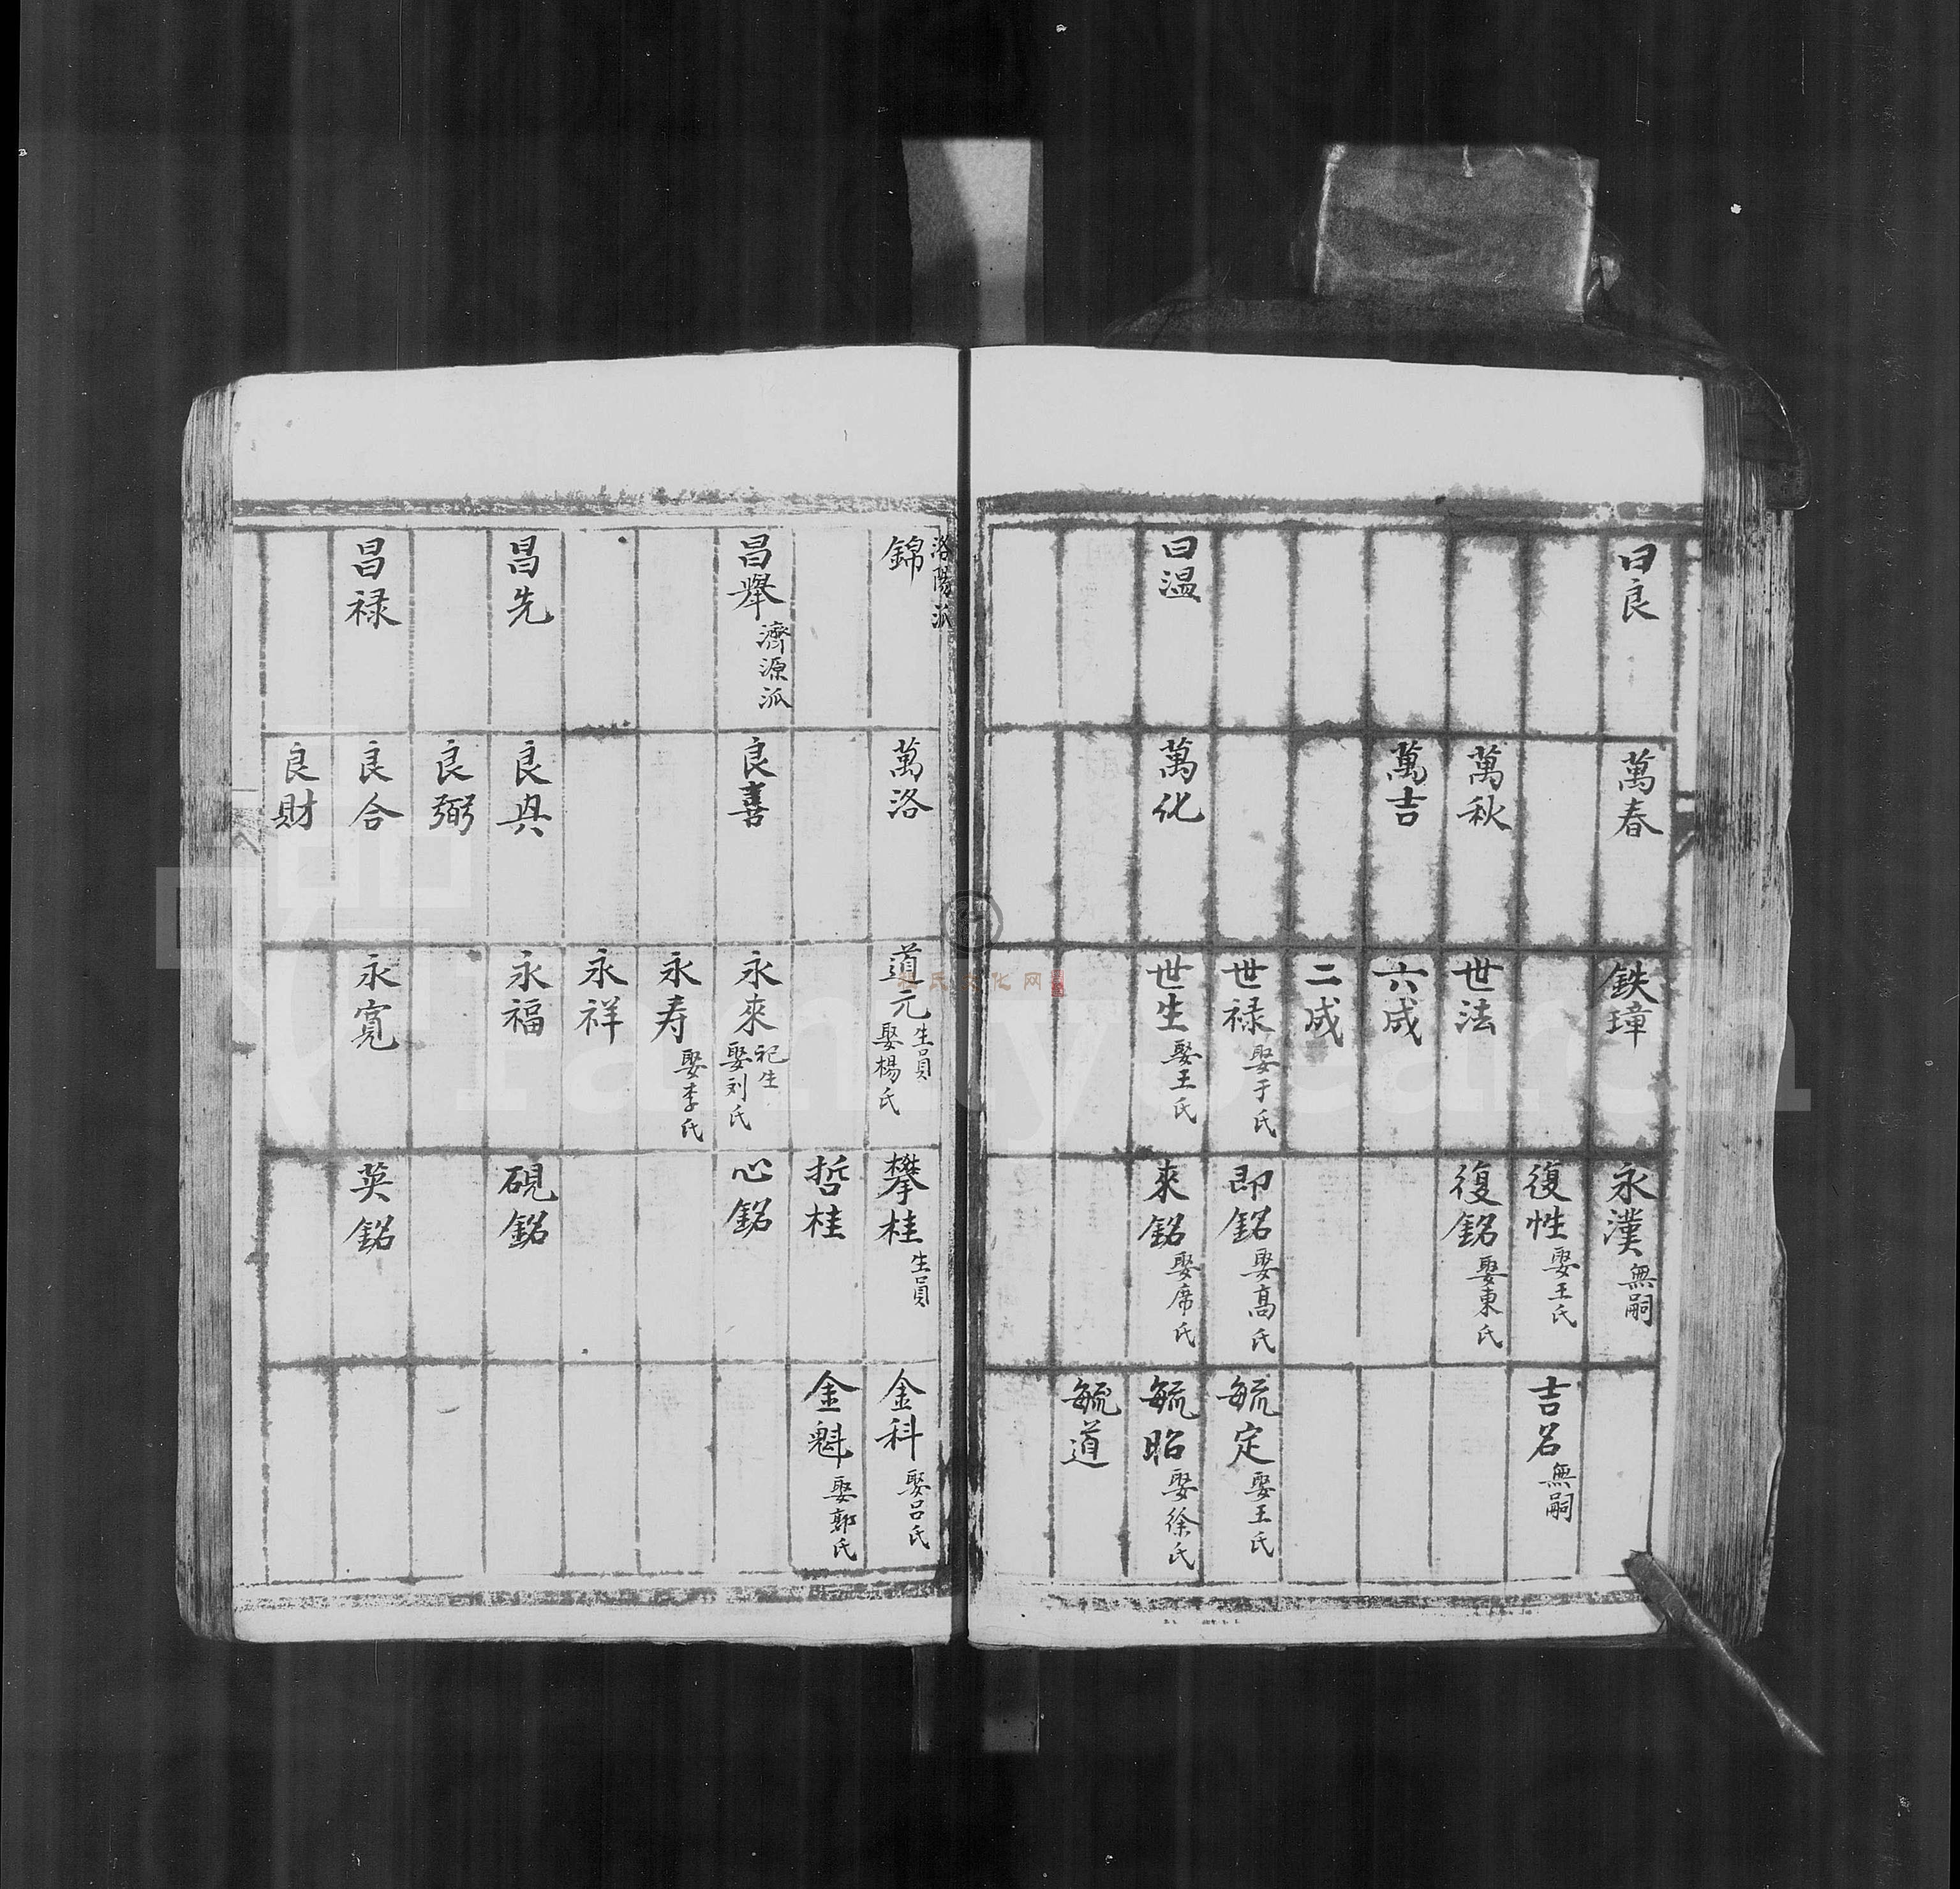 曰良
曰温
萬春
萬秋
萬吉
萬化
鉄璋
世法
六成
二成
世禄 娶于氏
世生 娶王氏
永漢 無嗣
復性 娶王氏
復銘 娶東氏
即銘 娶高氏
來銘 娶席氏
吉名 無嗣
毓定 娶王氏
毓昭 娶徐氏
毓道
洛陽派
錦
昌舉 濟源派
昌先
昌禄
萬洛
良喜
良與
良弼
良合
良財
道元 生員 娶楊氏
永來 祀生 娶刘氏
永寿 娶李氏
永祥
永福
永寬
攀桂 生員
哲桂
心銘
硯銘
英銘
金科 娶吕氏
金魁 娶郭氏